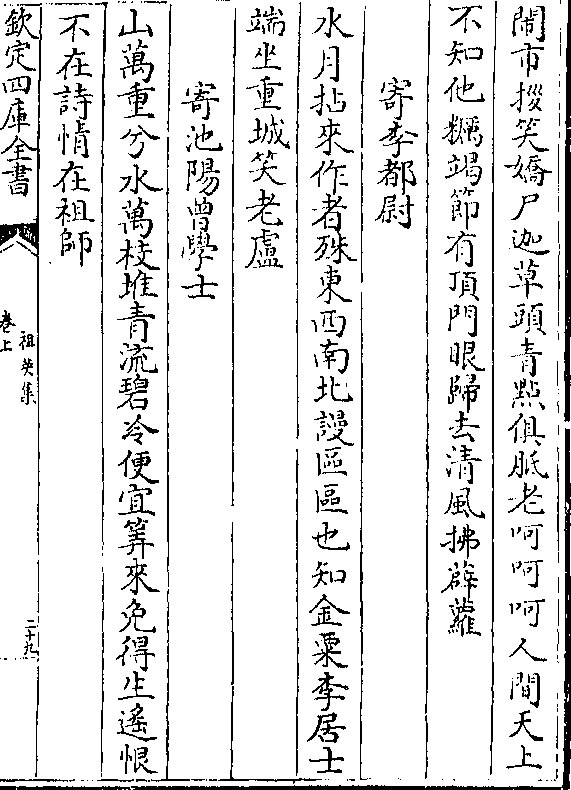 鬧市挨笑嬌尸迦草頭青㸃俱胝老呵呵呵人間天上
不知他羯竭節有頂門眼歸去清風拂薜蘿
寄李都尉
水月拈來作者殊東西南北謾區區也知金粟李居士
端坐重城笑老盧
寄池陽曾學士
山萬重兮水萬枝堆青流碧冷便宜筭來免得生遙恨
不在詩情在祖師
欽定四庫全書
祖英集
卷上
二十九